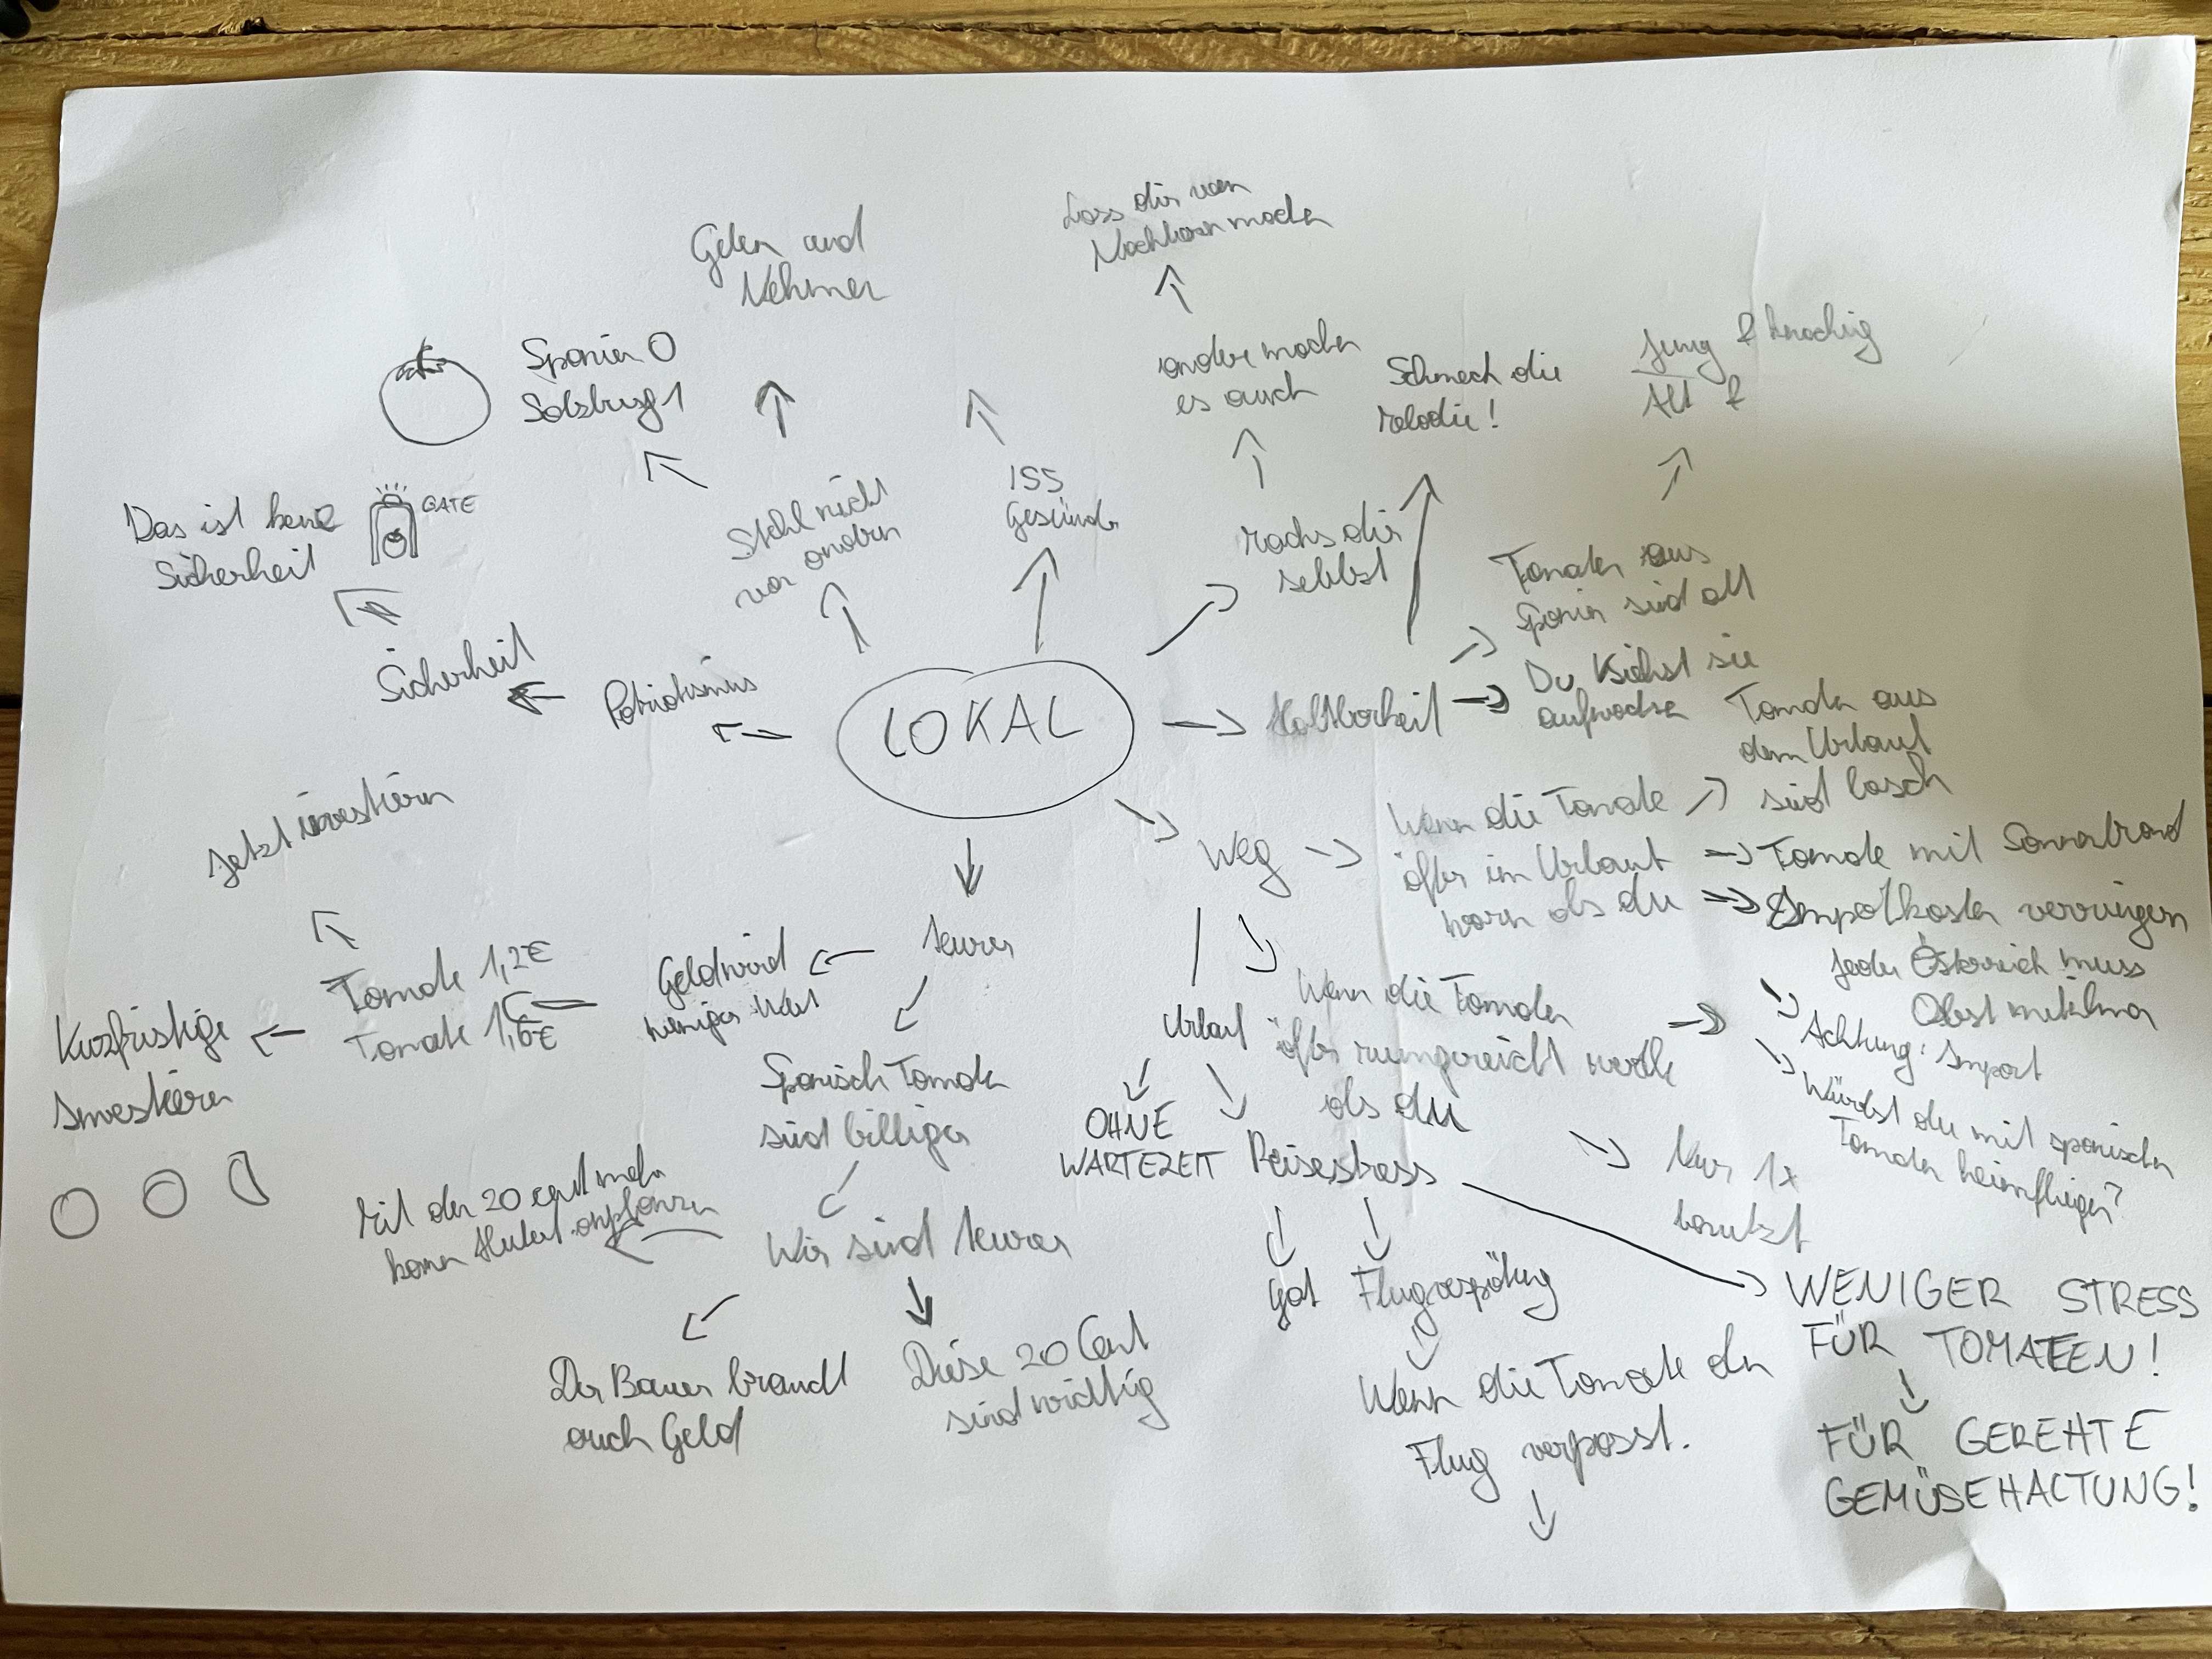 Lass dir vom
Nachbarn machen
Geben und
Nehmen
andere machen
es auch
Schmeck die
Melodie!
Jung & knackig
Alt &
Spanien 0
Salzburg 1
Das ist keine
Sicherheit
GATE
Stehl nicht
von andern
ISS
Gesünder
Machs dir
selbst
Tomaten aus
Spanien sind alt
Sicherheit
Patriotismus
LOKAL
Haltbarkeit
Du siehst sie
aufwachsen
Tomaten aus
dem Urlaub
sind lasch
Jetzt investieren
Weg
Wenn die Tomate
öfter im Urlaub
warn als du
Tomate mit Sonnenbrand
Importkosten verringern
Jeder Österreich muss
Obst mitnehmen
teurer
Geld wird
weniger Wert
Tomate 1,2€
Tomate 1,6€
Kurzfristige
Investieren
Urlaub
Wenn die Tomaten
öfter rumgereicht werden
als du
Achtung: Import
Würdest du mit spanischen
Tomaten heimfliegen?
Spanisch Tomaten
sind billiger
OHNE
WARTEZEIT
Reisestress
Nur 1x
benutzt
Mit den 20 cent mehr
kann Hubert anpflanzen
Wir sind teurer
Gat
Flugverspätung
WENIGER STRESS
FÜR TOMATEEN!
Der Bauer braucht
auch Geld
Diese 20 Cent
sind wichtig
Wenn die Tomate den
Flug verpasst.
FÜR GEREHTE
GEMÜSEHALTUNG!